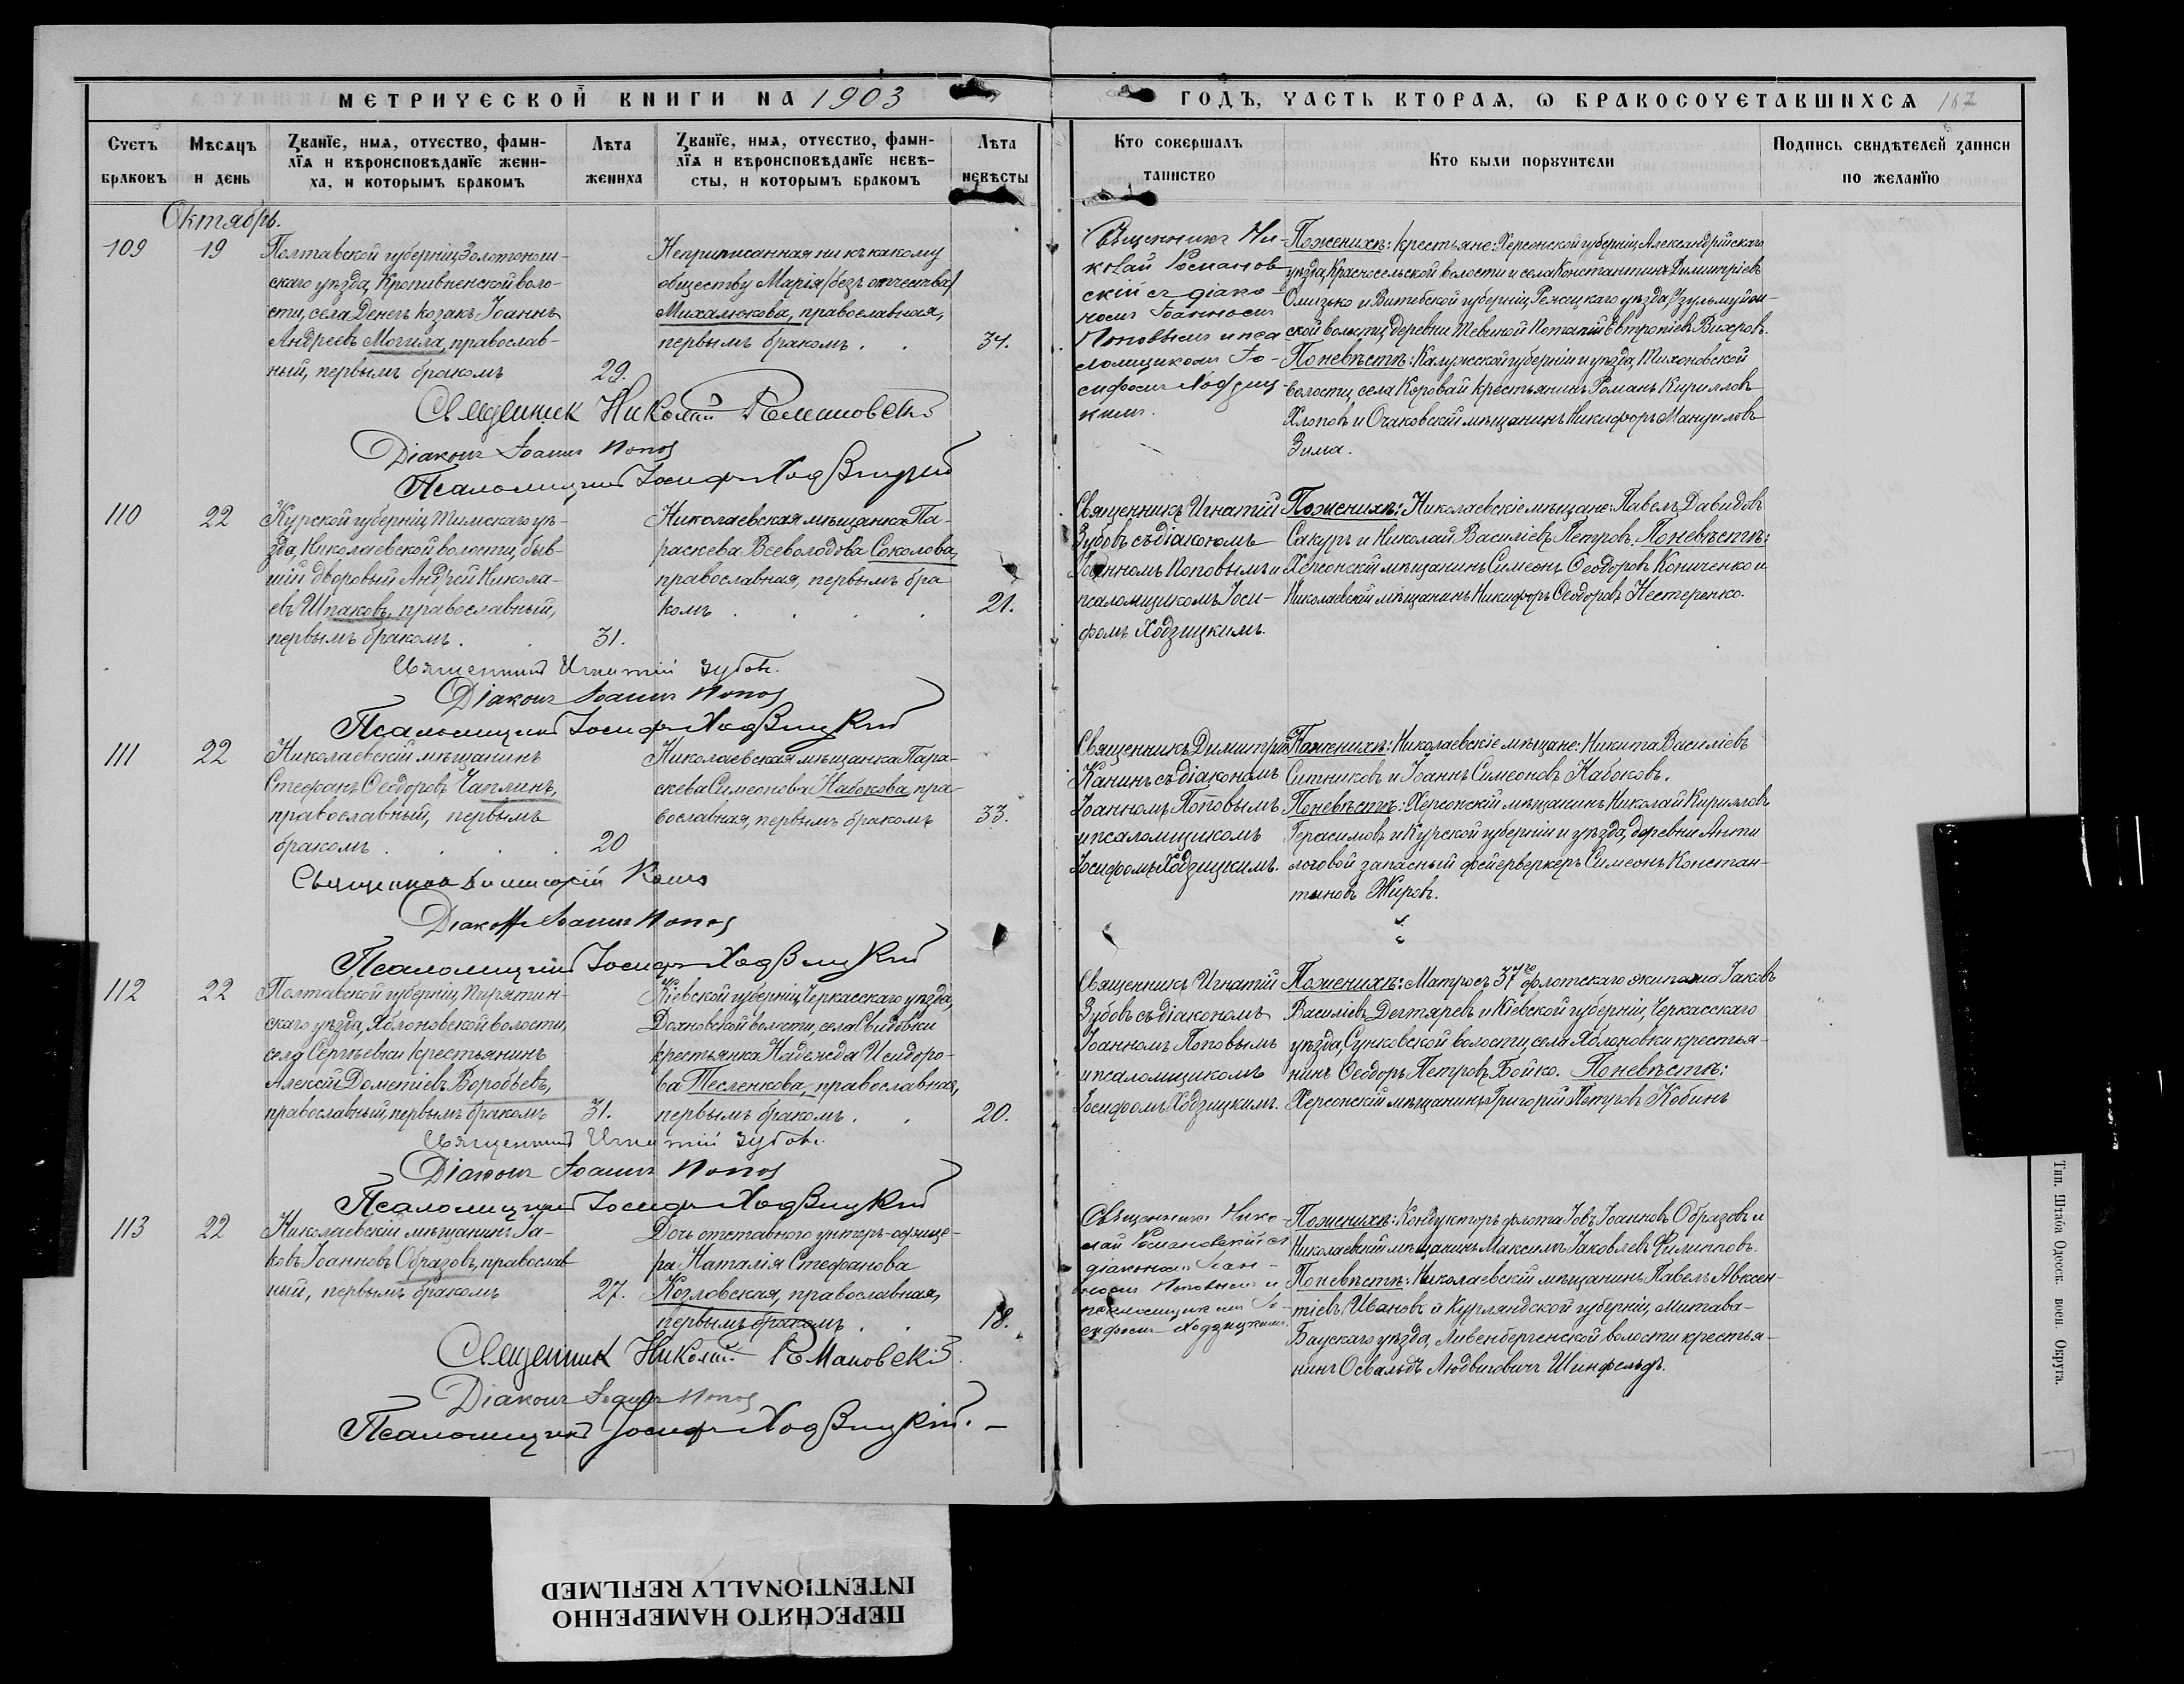 МЕТРИЧЕСКОЙ КНИГИ НА 1903
ГОДЪ, ЧАСТЬ ВТОРАЯ, Ѡ БРАКОСОЧЕТАВШИХСЯ 167
Счетъ браковъ
Мѣсяцъ и день
Званіе, имя, отчество, фами-
лія и вѣроисповѣданіе жени-
ха, и которымъ бракомъ
Лѣта жениха
Званіе, имя, отчество, фами-
лія и вѣроисповѣданіе невѣ-
сты, и которымъ бракомъ
Лѣта невѣсты
Кто совершалъ таинство
Кто были поручители
Подпись свидѣтелей записи по желанію
Октябрь.
109
19
Полтавской губерніи, Золотонош-
скаго уѣзда, Кропивненской воло-
сти, села Денегъ козакъ Іоаннъ
Андреевъ Могила, православ-
ный, первымъ бракомъ
29.
Неприписанная ни къ какому
обществу Марія (безъ отчества)
Михалюкова, православная,
первымъ бракомъ . .
34.
Священникъ Ни-
колай Романов
скій съ діако-
номъ Іоанномъ
Поповымъ и пса
ломщикомъ Іо-
сифомъ Ходзиц-
кимъ.
По женихѣ: крестьяне: Херсонской губерніи, Александрійскаго
уѣзда, Красносельской волости и села Константинъ Димитріевъ
Олизько и Витебской губерніи, Режецкаго уѣзда, Узульмуйж-
ской волости, деревни Тевиной Потапій Евтропіевъ Вихровъ.
По невѣстѣ: Калужской губерніи и уѣзда, Тихоновской
волости, села Коровай крестьянинъ Романъ Кирилловъ
Хлоповъ и Очаковскій мѣщанинъ Никифоръ Мануиловъ
Зима.
Священник Николай Романовскій
Діаконъ Іоаннъ Попов
Псаломщикъ Іосифъ Ходзицкій
110
22
Курской губерніи, Тимскаго уѣ-
зда, Николаевской волости, быв-
шій дворовый Андрей Никола-
евъ Шпаковъ, православный,
первымъ бракомъ . .
31.
Николаевская мѣщанка Па-
раскева Всеволодова Соколова,
православная, первымъ бра
комъ . . . .
21.
Священникъ Игнатій
Зубовъ съ діакономъ
Іоанномъ Поповымъ и
псаломщикомъ Іоси-
фомъ Ходзицкимъ.
По женихѣ: Николаевскіе мѣщане: Павелъ Давидовъ
Сакуръ и Николай Василіевъ Петровъ. По невѣстѣ:
Херсонскій мѣщанинъ Симеонъ Ѳеодоровъ Кониченко и
Николаевскій мѣщанинъ Никифоръ Ѳеодоровъ Нестеренко.
Священникъ Игнатій Зубовъ.
Діаконъ Іоаннъ Попов
Псаломщикъ Іосифъ Ходзицкій
111
22
Николаевскій мѣщанинъ
Стефанъ Ѳеодоровъ Чаплинъ,
православный, первымъ
бракомъ . . . .
20
Николаевская мѣщанка Пара-
скева Симеонова Набокова, пра-
вославная, первымъ бракомъ
33.
Священникъ Димитрій
Канинъ съ діакономъ
Іоанномъ Поповымъ
и псаломщикомъ
Іосифомъ Ходзицкимъ.
По женихѣ: Николаевскіе мѣщане: Никита Василіевъ
Ситниковъ и Іоаннъ Симеоновъ Набоковъ.
По невѣстѣ: Херсонскій мѣщанинъ Николай Кирилловъ
Герасимовъ и Курской губерніи и уѣзда, деревни Анпи
логовой запасный фейерверкеръ Симеонъ Констан-
тиновъ Жировъ.
Священникъ Димитрій
Діаконъ Іоаннъ Попов
Псаломщикъ Іосифъ Ходзицкій
112
22
Полтавской губерніи, Пирятин-
скаго уѣзда, Яблоновской волости,
села Сергѣевки крестьянинъ
Алексій Дометіевъ Воробьевъ,
православный, первымъ бракомъ
31.
Кіевской губерніи, Черкасскаго уѣзда,
Дахновской волости, села Свидовки
крестьянка Надежда Исидоро-
ва Тесленкова, православная,
первымъ бракомъ . .
20.
Священникъ Игнатій
Зубовъ съ діакономъ
Іоанномъ Поповымъ
и псаломщикомъ
Іосифомъ Ходзицкимъ.
По женихѣ: Матросъ 37го флотскаго экипажа Іаковъ
Василіевъ Дегтяревъ и Кіевской губерніи, Черкасскаго
уѣзда, Сунковской волости, села Яблоновки крестья-
нинъ Ѳеодоръ Петровъ Бойко. По невѣстѣ:
Херсонскій мѣщанинъ Григорій Петровъ Кобинъ
Священникъ Игнатій Зубовъ.
Діаконъ Іоаннъ Попов
Псаломщикъ Іосифъ Ходзицкій
113
22
Николаевскій мѣщанинъ Іа-
ковъ Іоанновъ Образовъ, православ
ный, первымъ бракомъ
27.
Дочь отставного унтеръ-офице-
ра Наталія Стефанова
Козловская, православная,
первымъ бракомъ . .
18.
Священникъ Нико
лай Романовскій съ
діакономъ Іоан-
номъ Поповымъ и
псаломщикомъ Іо-
сифомъ Ходзицкимъ.
По женихѣ: Кондукторъ флота Іовъ Іоанновъ Образовъ и
Николаевскій мѣщанинъ Максимъ Іаковлевъ Филипповъ.
По невѣстѣ: Николаевскій мѣщанинъ Павелъ Авксен-
тіевъ Ивановъ и Курляндской губерніи, Митава-
Баускаго уѣзда, Ливенбергенской волости крестья-
нинъ Освальдъ Людвиговичъ Шинфельдъ.
Священник Николай Романовскій
Діаконъ Іоаннъ Попов
Псаломщикъ Іосифъ Ходзицкій.
Тип. Штаба Одесск. воен. Округа.
ПЕРЕСНЯТО НАМЕРЕННО
INTENTIONALLY REFILMED